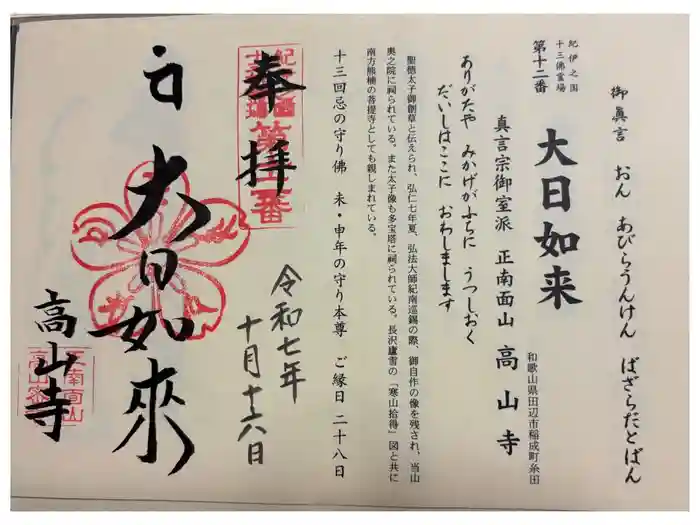 御真言　おん　あびらうんけん　ばざらだとばん
紀伊之国
十三佛霊場
第十二番
大日如来
和歌山県田辺市稲成町糸田
真言宗御室派　正南面山　高山寺
ありがたや　みかげがふちに　うつしおく
だいしはここに　おわしまします
聖徳太子御創草と伝えられ、弘仁七年夏、弘法大師紀南巡錫の際、御自作の像を残され、当山
奥之院に祠られている。また太子像も多宝塔に祠られている。長沢廬雪の「寒山拾得」図と共に
南方熊楠の菩提寺としても親しまれている。
十三回忌の守り佛　未・申年の守り本尊　ご縁日　二十八日
奉拝
令和七年
十月十六日
大日如來
高山寺